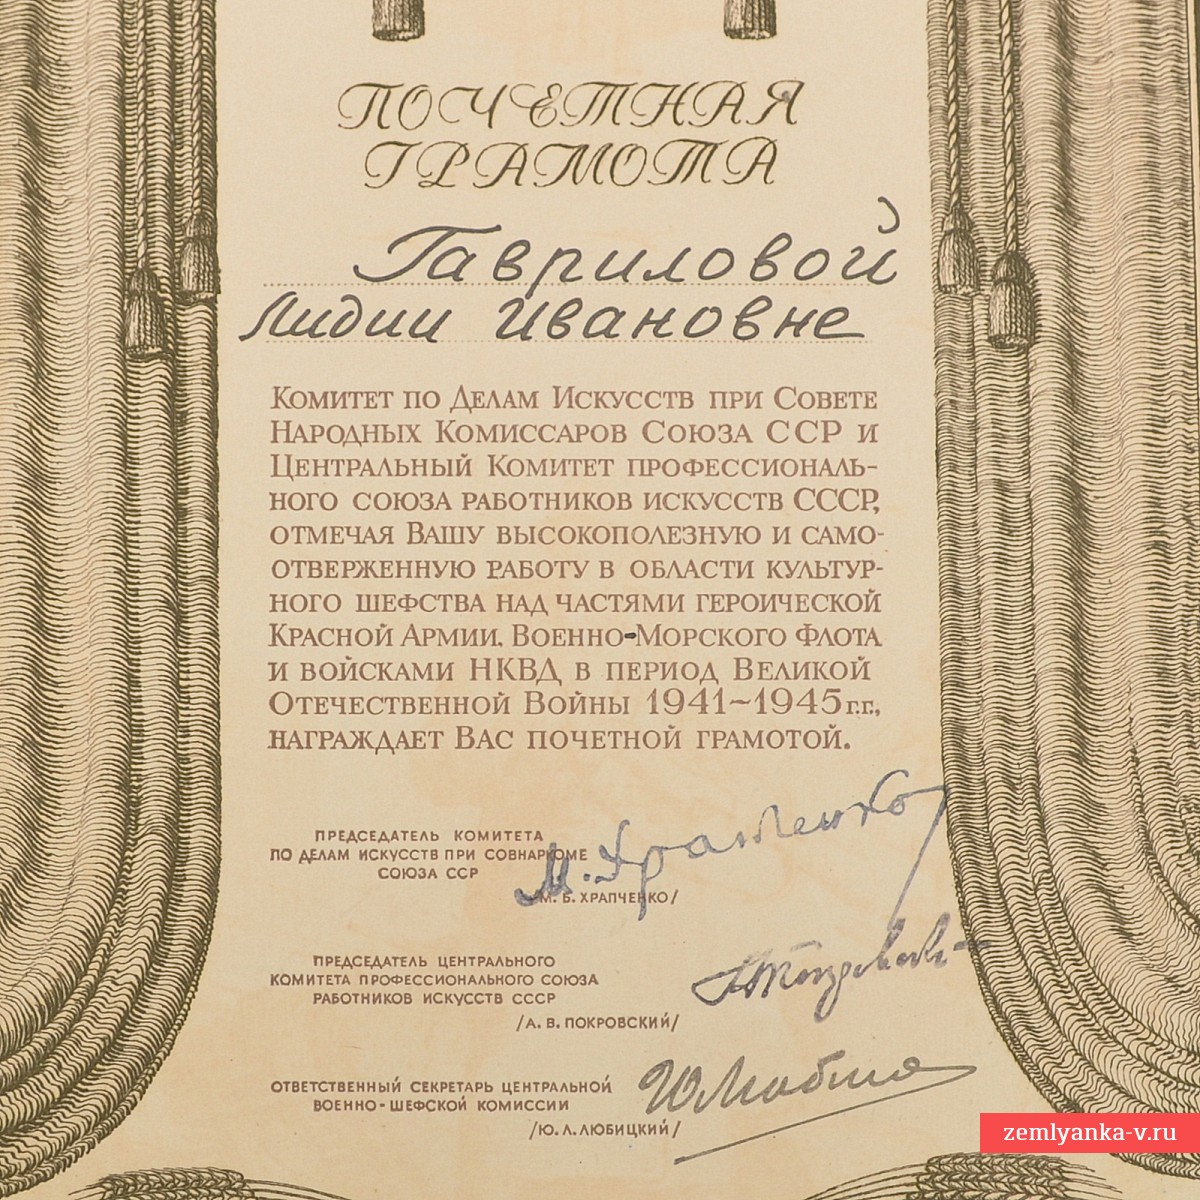 ПОЧЕТНАЯ
ГРАМОТА
Гавриловой
Лидии Ивановне
Комитет по Делам Искусств при Совете
Народных Комиссаров Союза ССР и
Центральный Комитет профессиональ-
ного союза работников искусств СССР,
отмечая Вашу высокополезную и само-
отверженную работу в области культур-
ного шефства над частями героической
Красной Армии, Военно-Морского Флота
и войсками НКВД в период Великой
Отечественной Войны 1941~1945 г.г.,
награждает Вас почетной грамотой.
ПРЕДСЕДАТЕЛЬ КОМИТЕТА
ПО ДЕЛАМ ИСКУССТВ ПРИ СОВНАРКОМЕ
СОЮЗА ССР
М. Храпченко
/М. Б. ХРАПЧЕНКО/
ПРЕДСЕДАТЕЛЬ ЦЕНТРАЛЬНОГО
КОМИТЕТА ПРОФЕССИОНАЛЬНОГО СОЮЗА
РАБОТНИКОВ ИСКУССТВ СССР
/А. В. ПОКРОВСКИЙ/
ОТВЕТСТВЕННЫЙ СЕКРЕТАРЬ ЦЕНТРАЛЬНОЙ
ВОЕННО-ШЕФСКОЙ КОМИССИИ
/Ю. Л. ЛЮБИЦКИЙ/
zemlyanka-v.ru